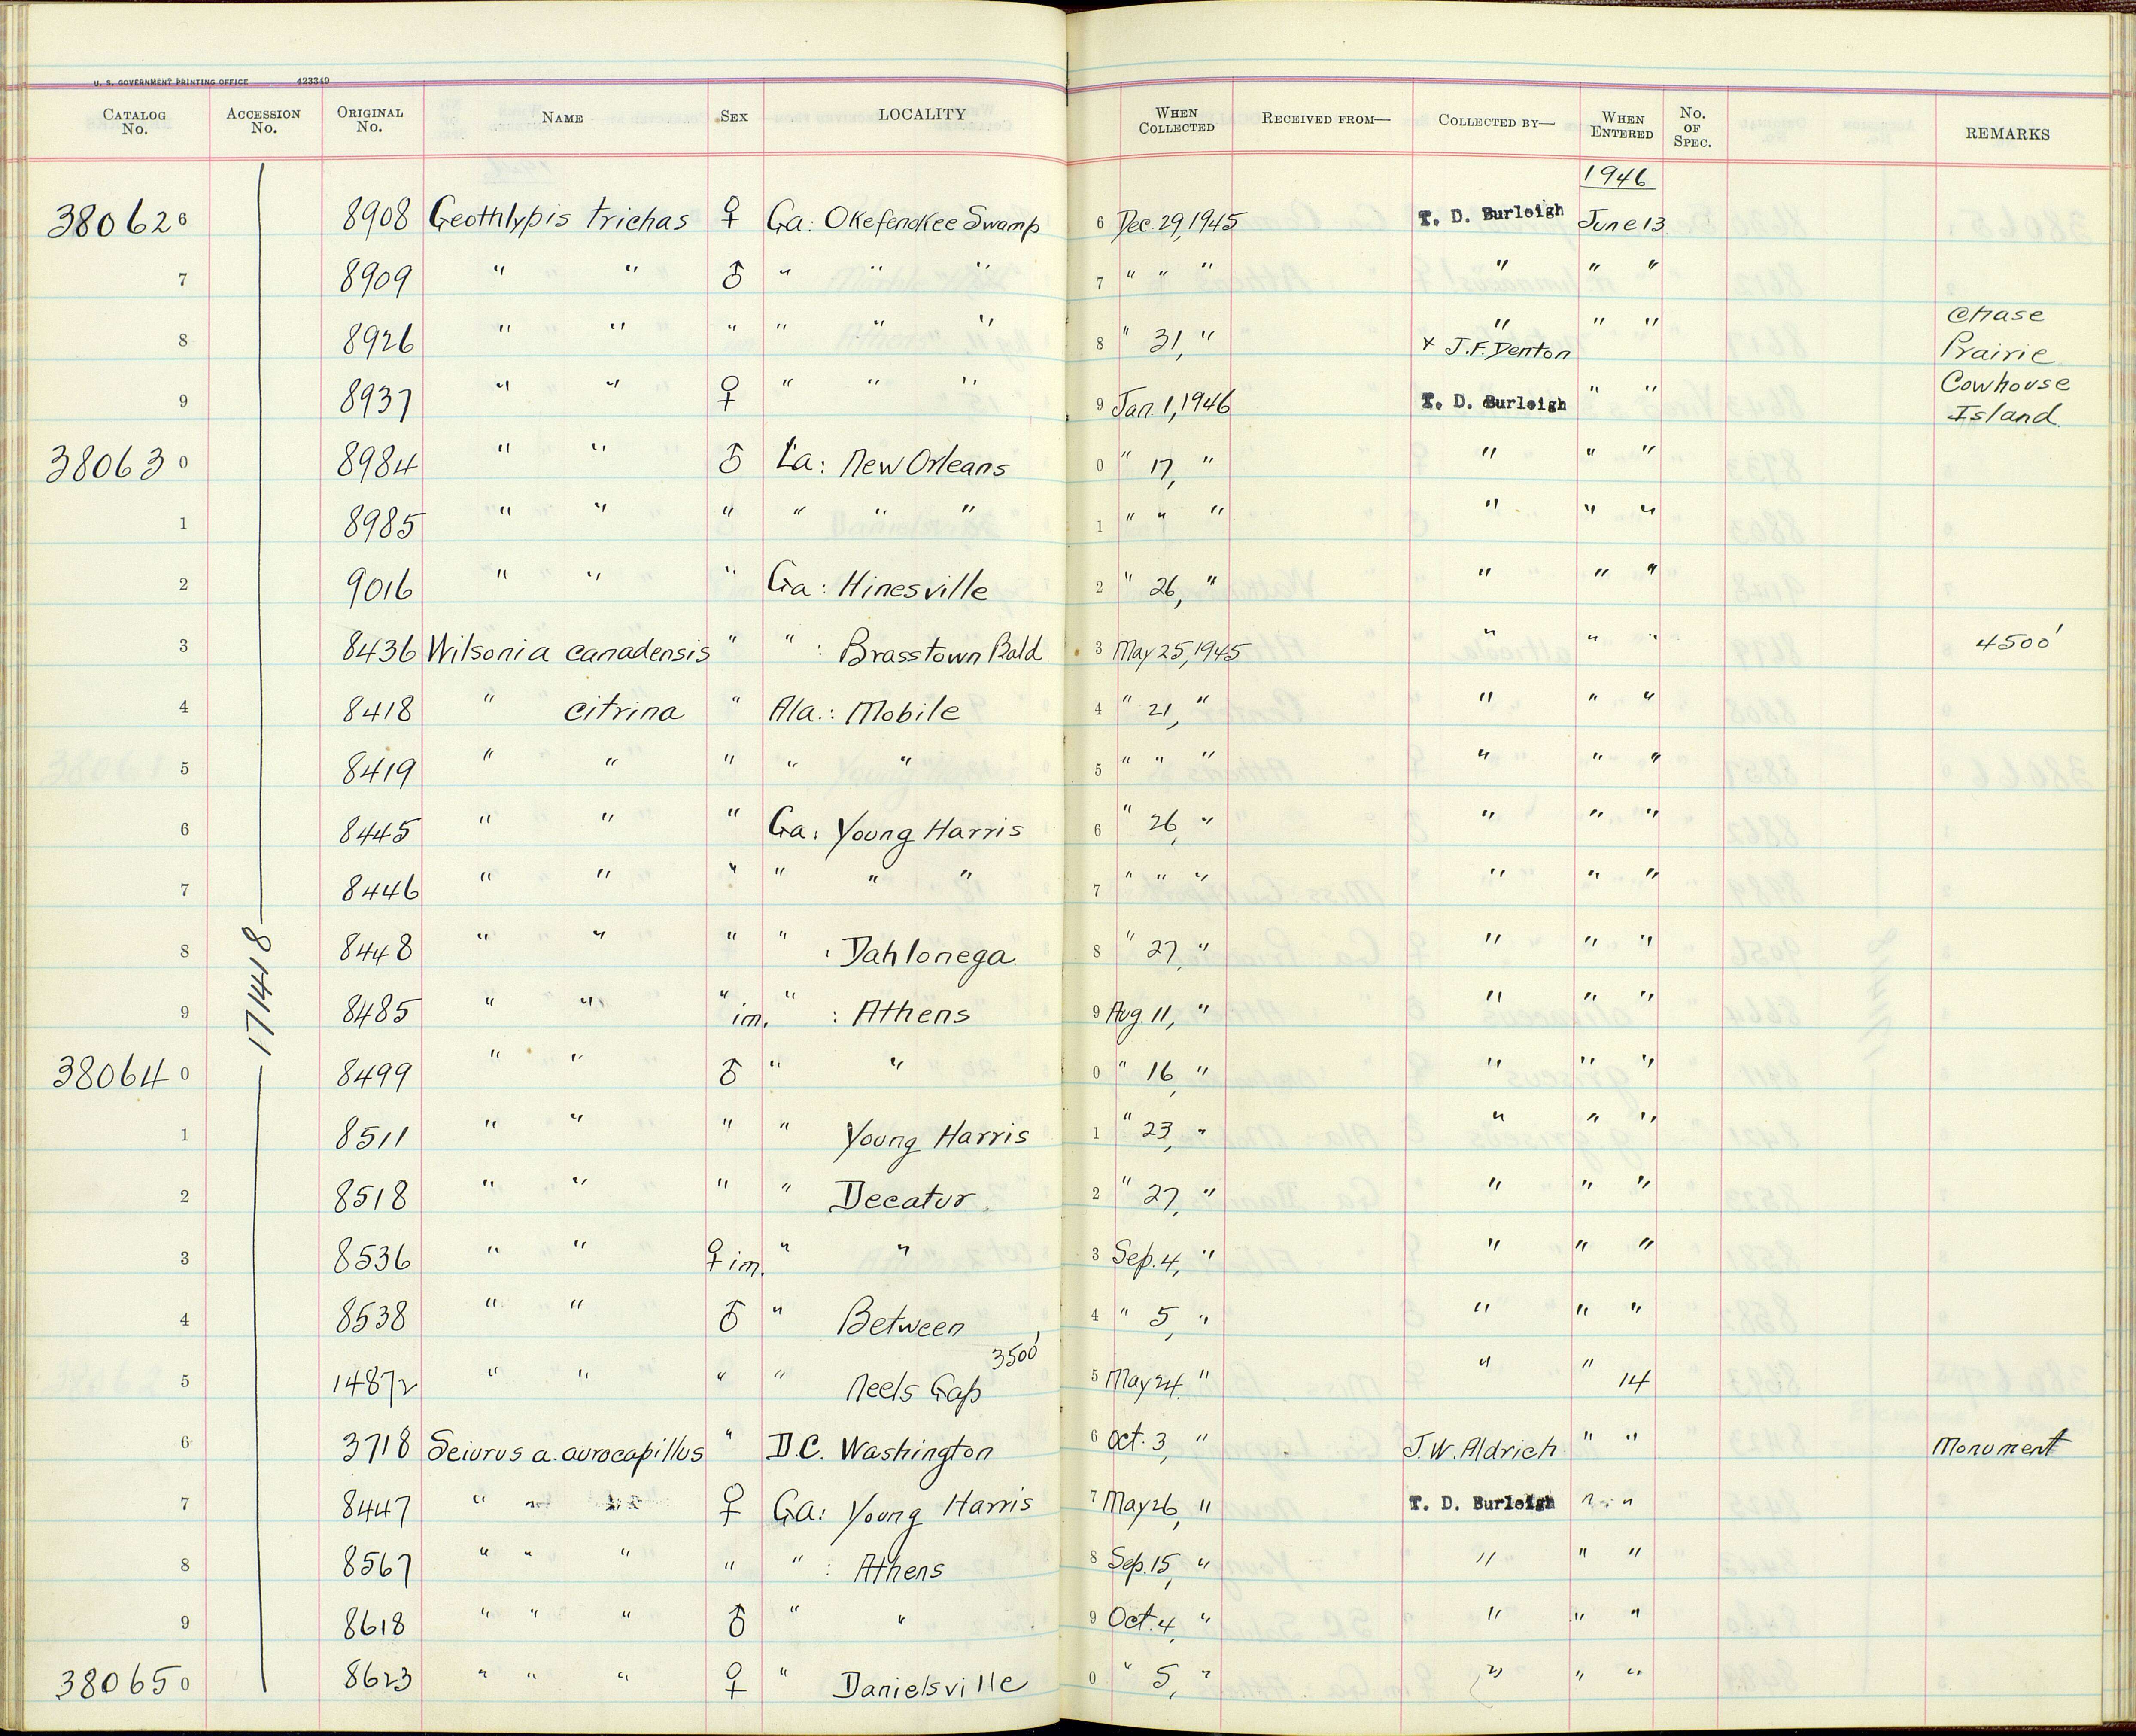 U. S. GOVERNMENT PRINTING OFFICE 423349
CATALOG No. ACCESSION No. ORIGINAL No. NAME SEX LOCALITY WHEN COLLECTED RECEIVED FROM— COLLECTED BY— WHEN ENTERED No. OF SPEC. REMARKS
1946
38062 6 8908 Geothlypis trichas ♀ Ga: Okefenokee Swamp 6 Dec. 29, 1945 T. D. Burleigh June 13
7 8909 " " ♂ " " " 7 " " " " " "
8 8926 " " " " " " 8 " 31, " " & J.F. Denton " " Chase Prairie
9 8937 " " ♀ " " " 9 Jan. 1, 1946 T. D. Burleigh " " Cowhouse Island
38063 0 8984 " " ♂ La: New Orleans 0 " 17, " " " "
1 8985 " " " " " " 1 " " " " " "
2 9016 " " " Ga: Hinesville 2 " 26, " " " "
3 8436 Wilsonia canadensis " " : Brasstown Bald 3 May 25, 1945 " " " 4500'
4 8418 " citrina " Ala.: Mobile 4 " 21, " " " "
5 8419 " " " " " 5 " " " " " "
6 8445 " " " Ga: Young Harris 6 " 26, " " " "
7 8446 " " " " " " 7 " " " " " "
8 8448 " " " " : Dahlonega 8 " 27, " " " "
171418
9 8485 " " " im. " : Athens 9 Aug. 11, " " " "
38064 0 8499 " " ♂ " " 0 " 16, " " " "
1 8511 " " " " Young Harris 1 " 23, " " " "
2 8518 " " " " Decatur 2 " 27, " " " "
3 8536 " " ♀ im. " " 3 Sep. 4, " " " "
4 8538 " " ♂ " Between 4 " 5, " " " "
5 14872 " " " " Neels Gap 3500' 5 May 24 " " " 14
6 3718 Seiurus a. aurocapillus " D.C. Washington 6 Oct. 3, " J. W. Aldrich " " Monument
7 8447 " " " ♀ Ga: Young Harris 7 May 26, " T. D. Burleigh " "
8 8567 " " " " " : Athens 8 Sep. 15, " " " "
9 8618 " " " ♂ " " 9 Oct. 4, " " " "
38065 0 8623 " " " ♀ " Danielsville 0 " 5, " " " "